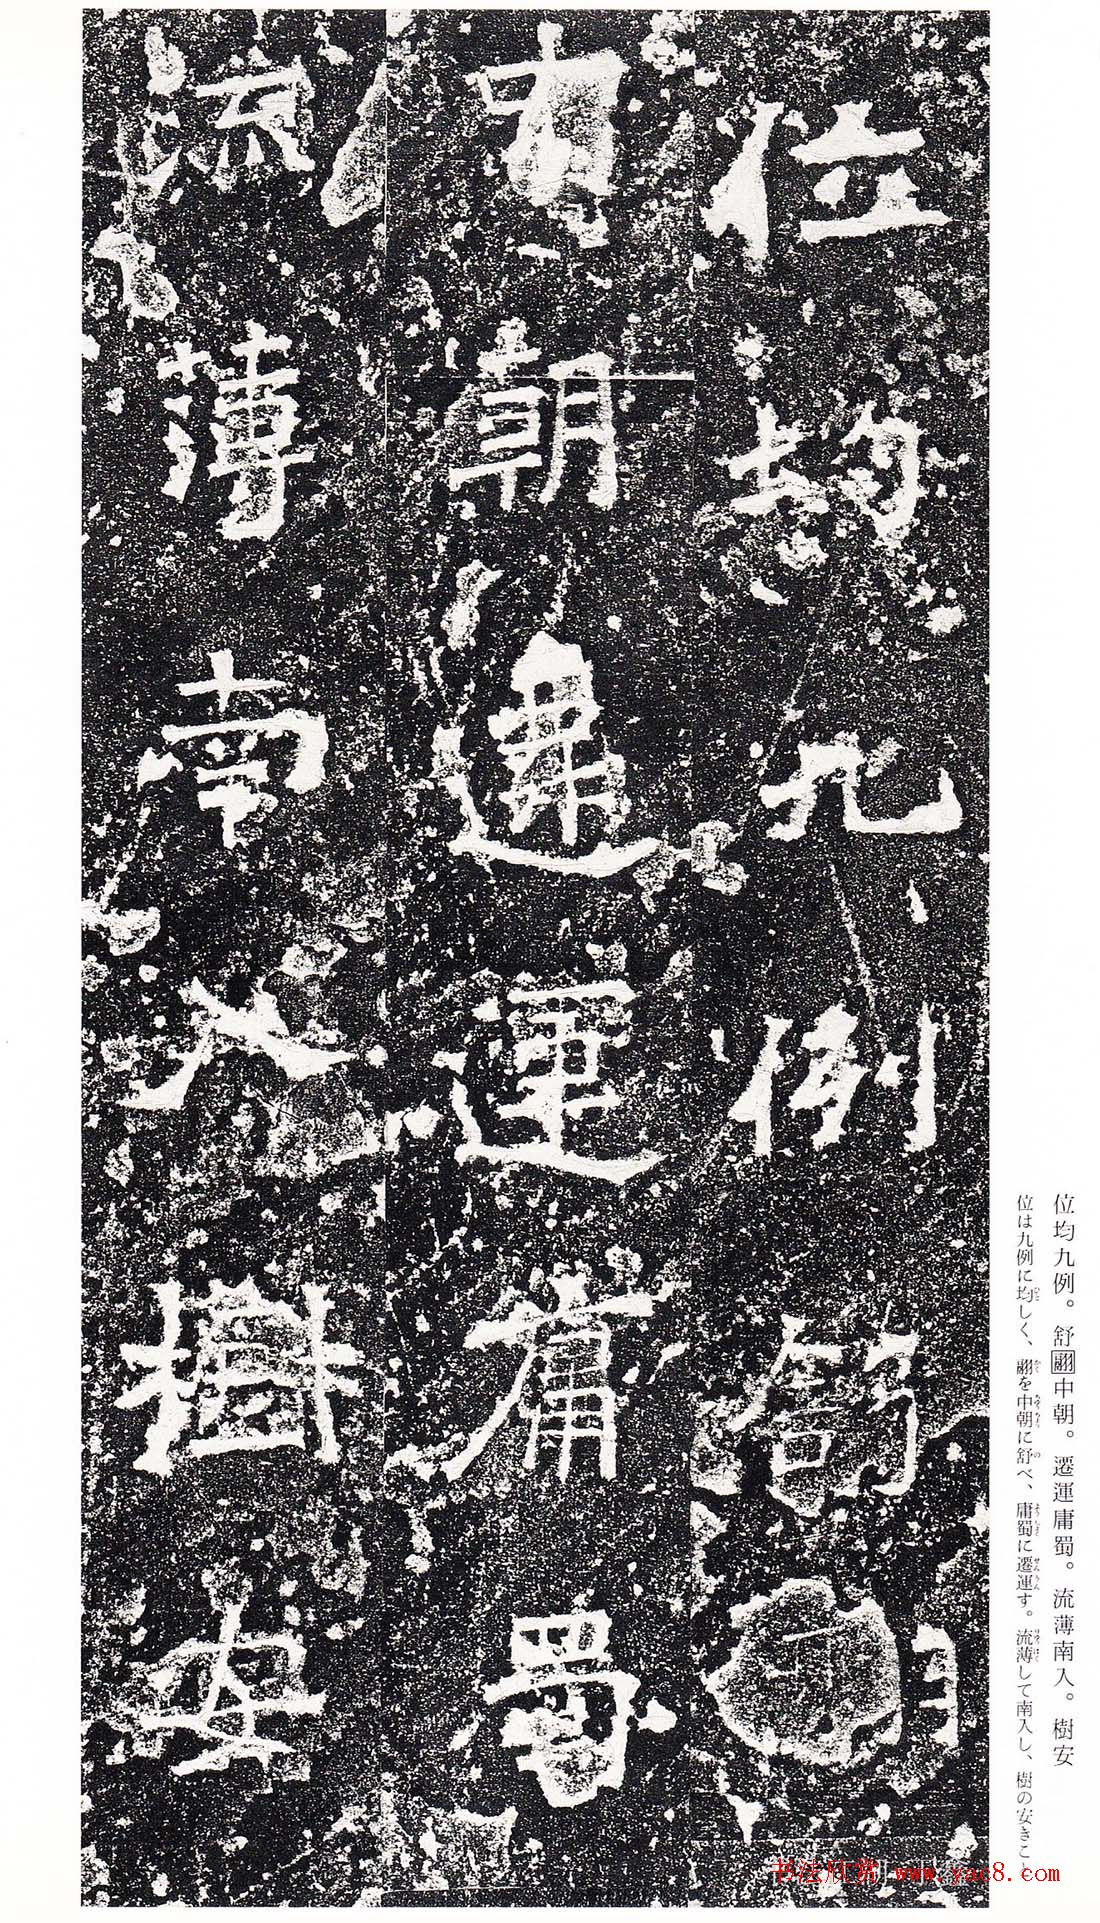 位均九例舒
中朝遷運庸蜀
流薄南入樹安
位均九例。舒翮中朝。遷運庸蜀。流薄南入。樹安
位は九例に均しく、翮を中朝に舒べ、庸蜀に遷運す。流薄して南入し、樹の安きこ
书法欣赏 www.yac8.com